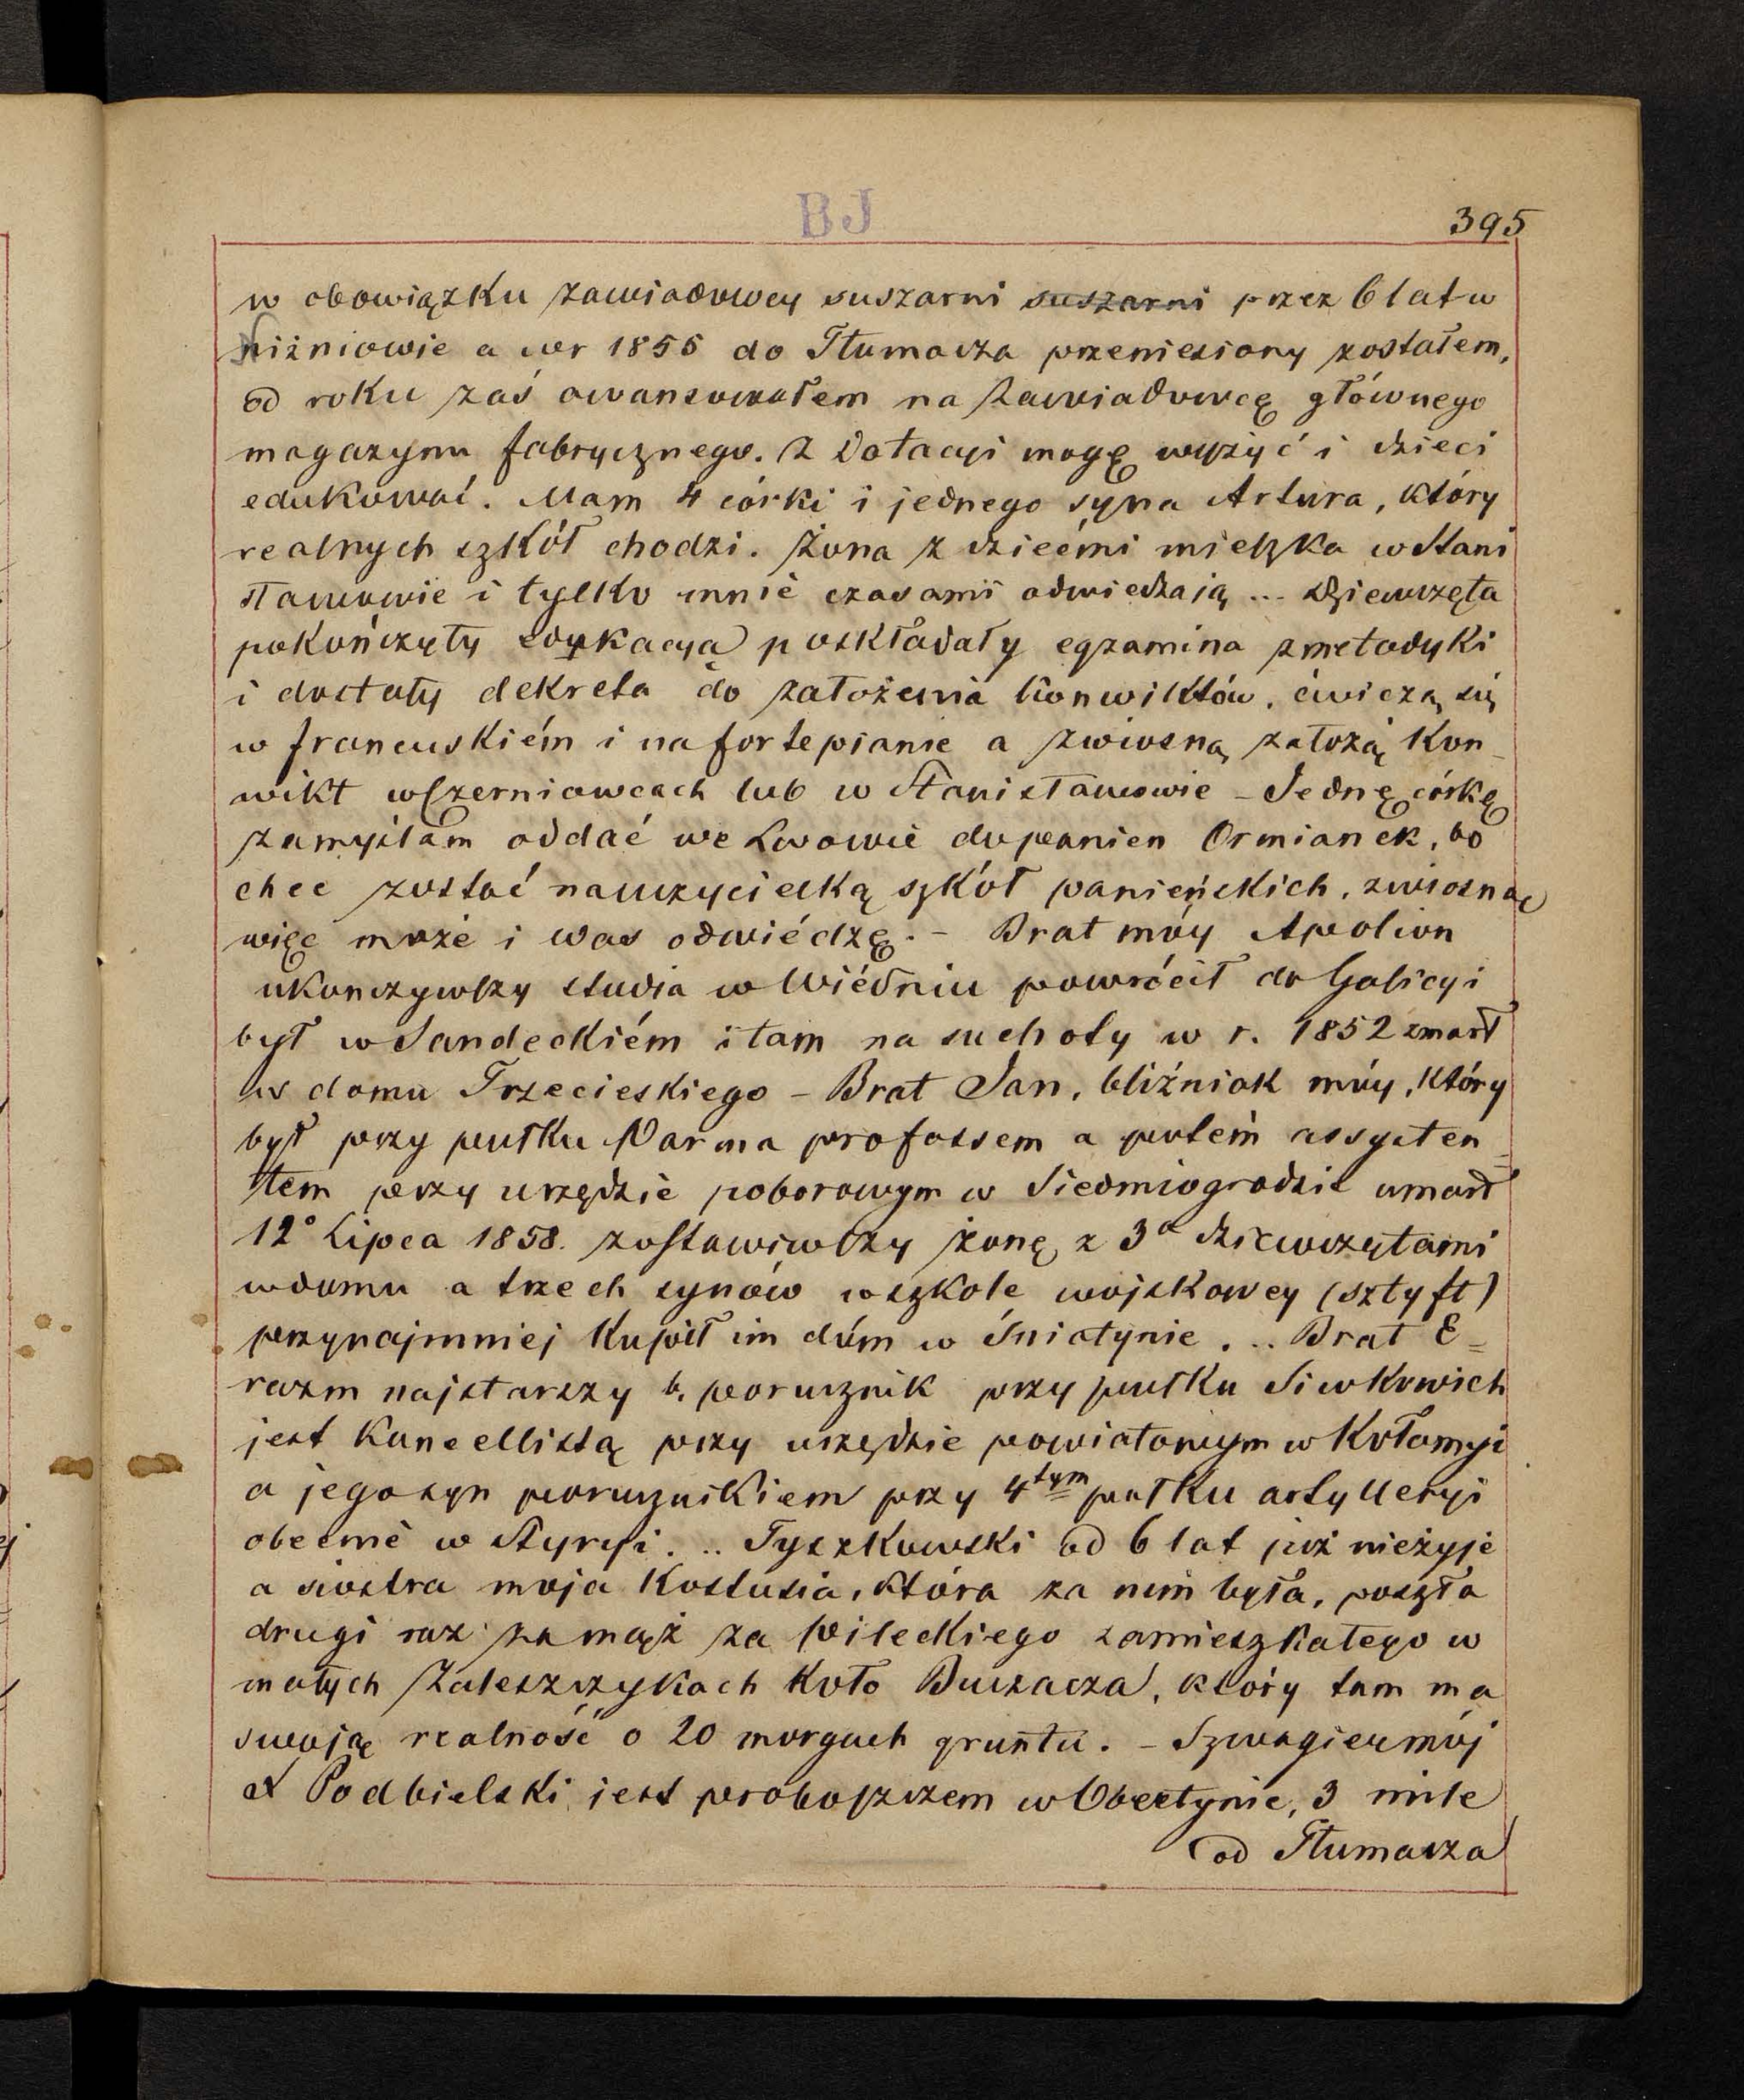 BJ
395
w obowiązku zawiadowcy suszarni suszarni przez 6 lat w
Niżniowie a w r 1855 do Tłumacza przeniesiony zostałem,
od roku zaś awansowałem na zawiadowcę głównego
magazynu fabrycznego. Z dotacyi mogę wyżyć i dzieci
edukować. Mam 4 córki i jednego syna Artura, który
realnych szkół chodzi. Żona z dziećmi mieszka w Stani
sławowie i tylko mnie czasami odwiedzają ... Dziewczęta
pokończyły edukacyą poskładały egzamina z metodyki
i dostały dekreta do założenia konwiktów, ćwiczą się
w francuskiém i na fortepianie a zwiosną założą kon_
wikt w Czerniowcach lub w Stanisławowie – Jednę córkę
zamyślam oddać we Lwowie do panien Ormianek, bo
chce zostać nauczycielką szkół panieńskich, zwiosną
więc może i was odwiédzę. – Brat móy Apolion
ukonczywszy studia w Wiédniu powrócił do Galicyi
był w Sandeckiém i tam na suchoty w r. 1852 zmarł
w domu Trzecieskiego – Brat Jan, bliźniak móy, który
był przy pułku Parma profossem a potém assysten_
tem przy urzędzie poborowym w Siedmiogrodzie umarł
12° Lipca 1858. zostawiwszy żonę z 3ª dziewczętami
w domu a trzech synów w szkole wojskowey (sztyft)
przynajmniej kupił im dóm w Śniatynie . .. Brat E=
razm najstarszy b. porucznik przy pułku Siwkowich
jest kancellistą przy urzędzie powiatowym w Kołomyi
a jego syn porucznikiem przy 4tym pułku artylleryi
obecnie w Styryi. .. Tyszkowski od 6 lat już nieżyje
a siostra moja Kostusia, która za nim była, poszła
drugi raz za mąż za Pileckiego zamieszkałego w
małych Zaleszczykach koło Buczacza, który tam ma
swoją realność o 20 morgach gruntu. – Szwagier mój
X Podbielski jest proboszczem w Obertynie, 3 mile
od Tłumacza